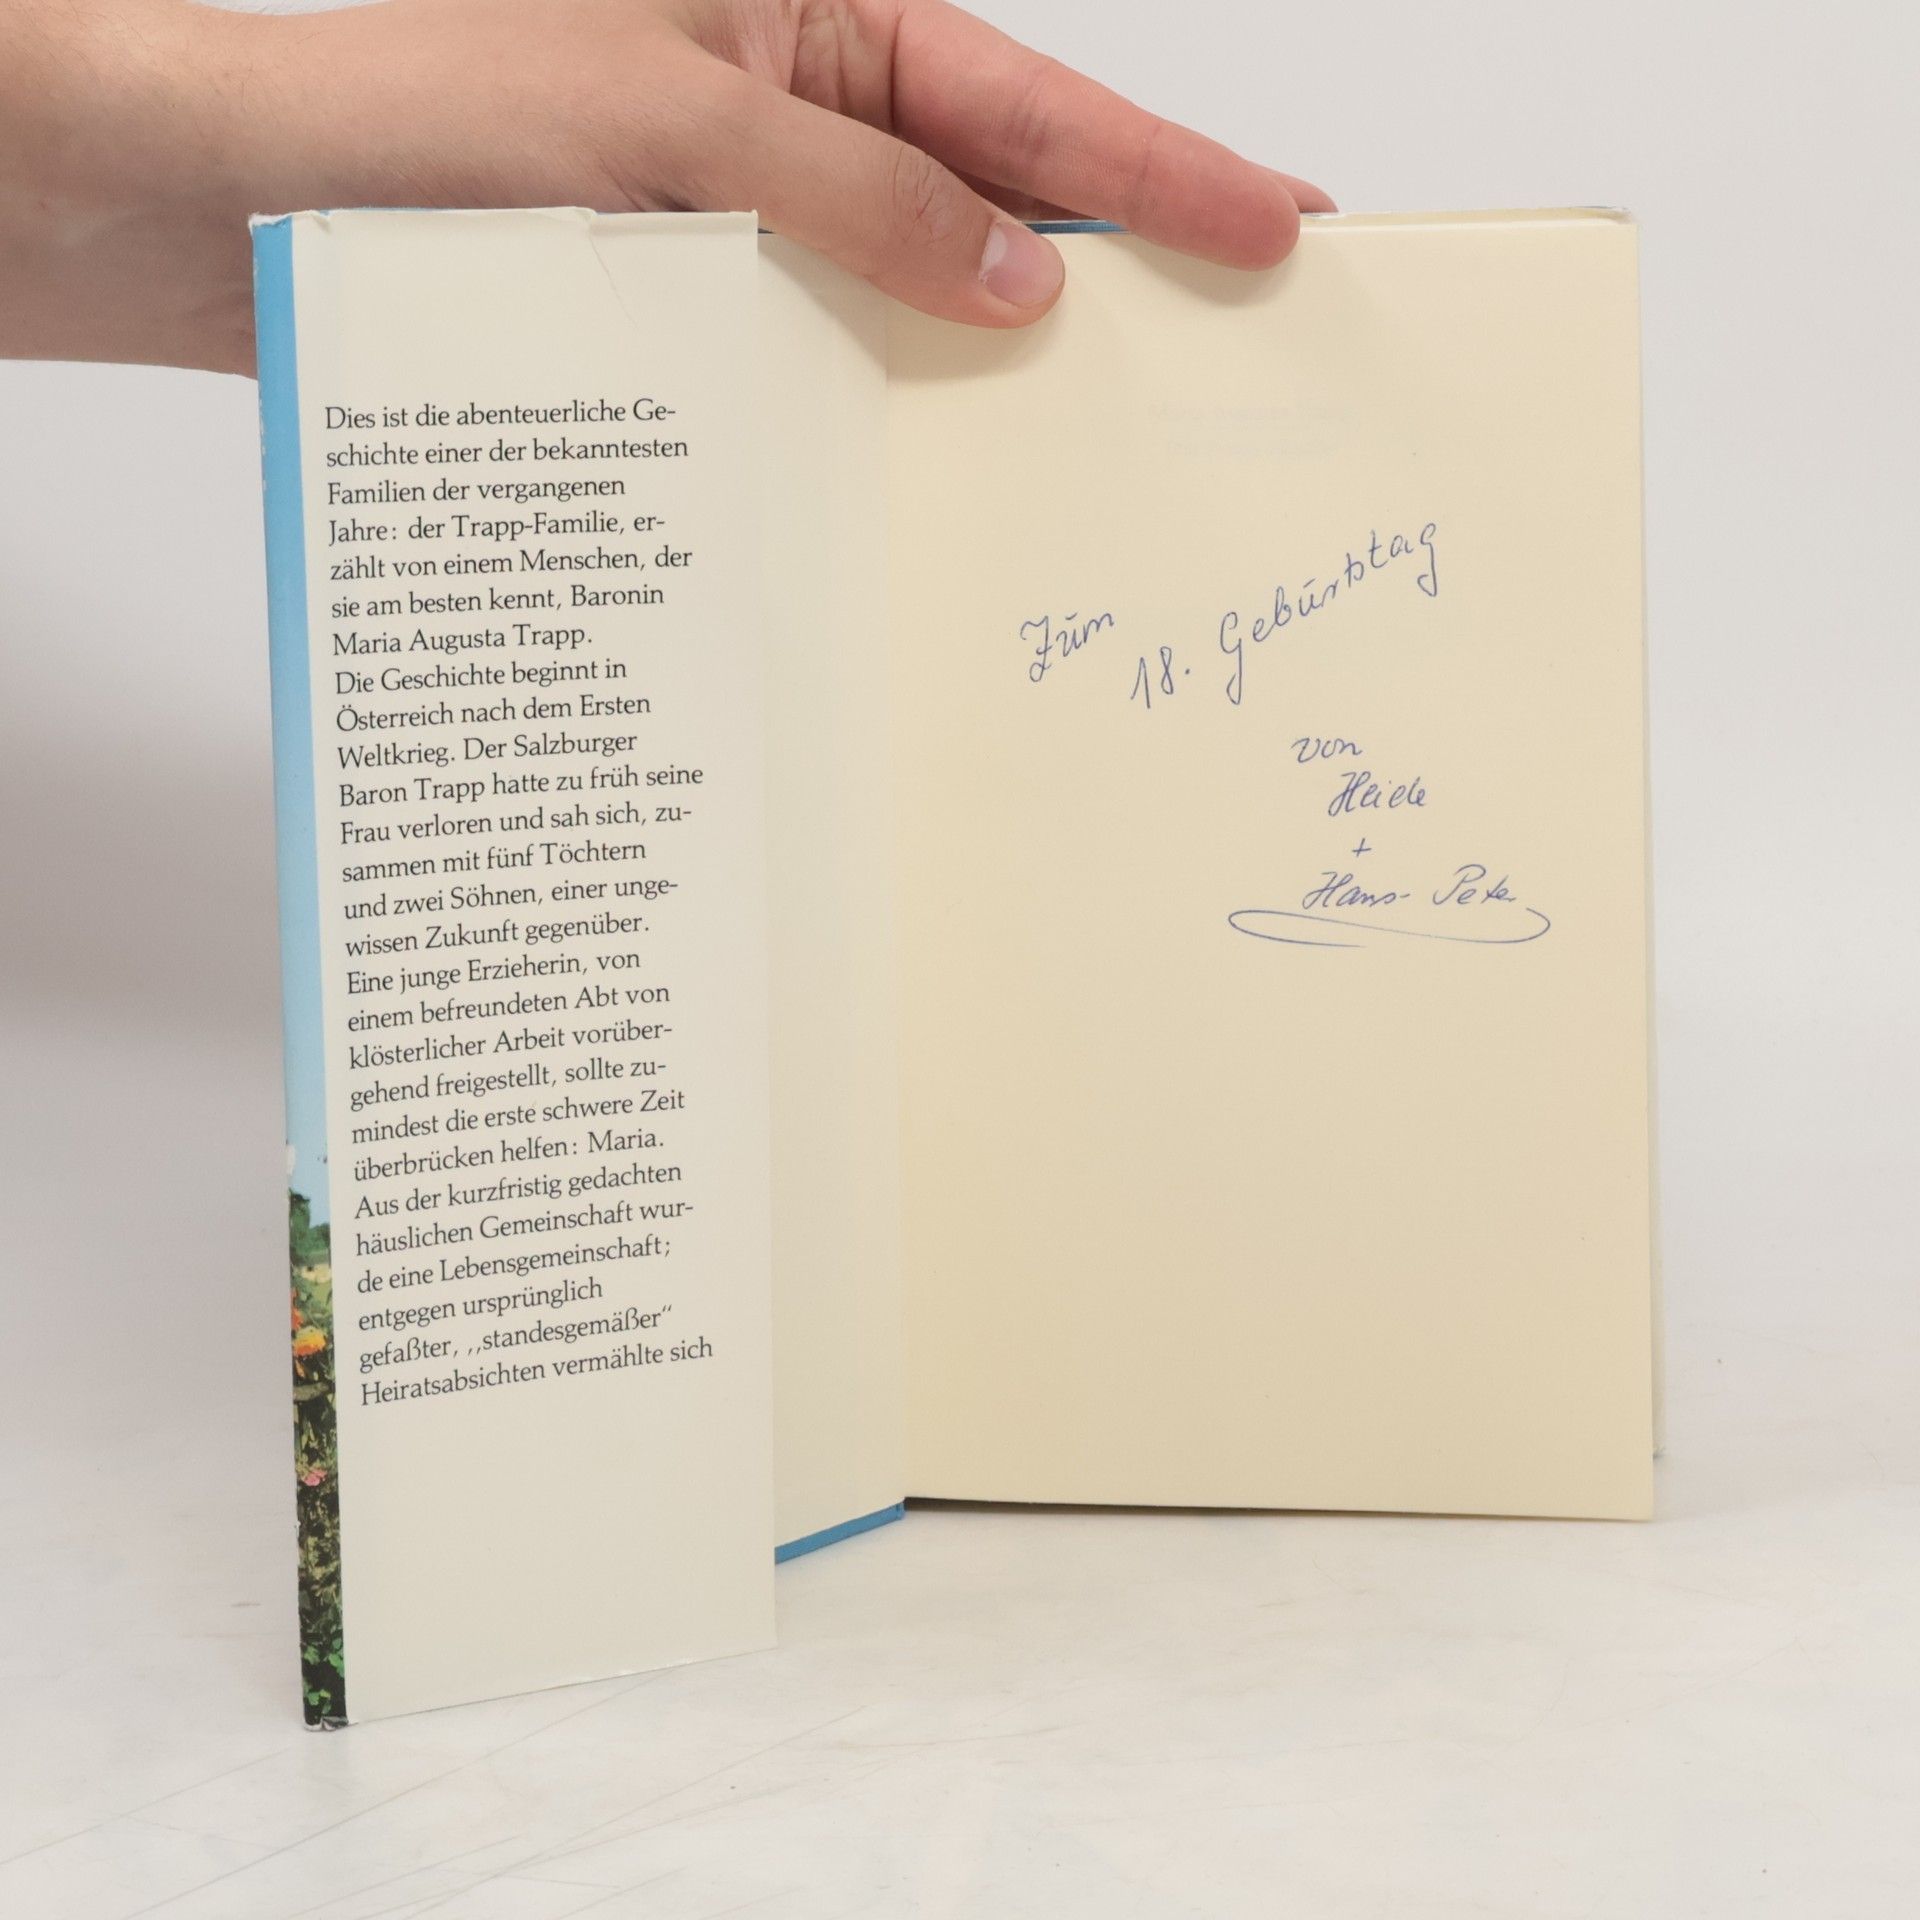 Dies ist die abenteuerliche Ge-
schichte einer der bekanntesten
Familien der vergangenen
Jahre: der Trapp-Familie, er-
zählt von einem Menschen, der
sie am besten kennt, Baronin
Maria Augusta Trapp.
Die Geschichte beginnt in
Österreich nach dem Ersten
Weltkrieg. Der Salzburger
Baron Trapp hatte zu früh seine
Frau verloren und sah sich, zu-
sammen mit fünf Töchtern
und zwei Söhnen, einer unge-
wissen Zukunft gegenüber.
Eine junge Erzieherin, von
einem befreundeten Abt von
klösterlicher Arbeit vorüber-
gehend freigestellt, sollte zu-
mindest die erste schwere Zeit
überbrücken helfen: Maria.
Aus der kurzfristig gedachten
häuslichen Gemeinschaft wur-
de eine Lebensgemeinschaft;
entgegen ursprünglich
gefaßter, ,,standesgemäßer“
Heiratsabsichten vermählte sich
Zum
18. Geburtstag
von
Heide
+
Hans-Peter